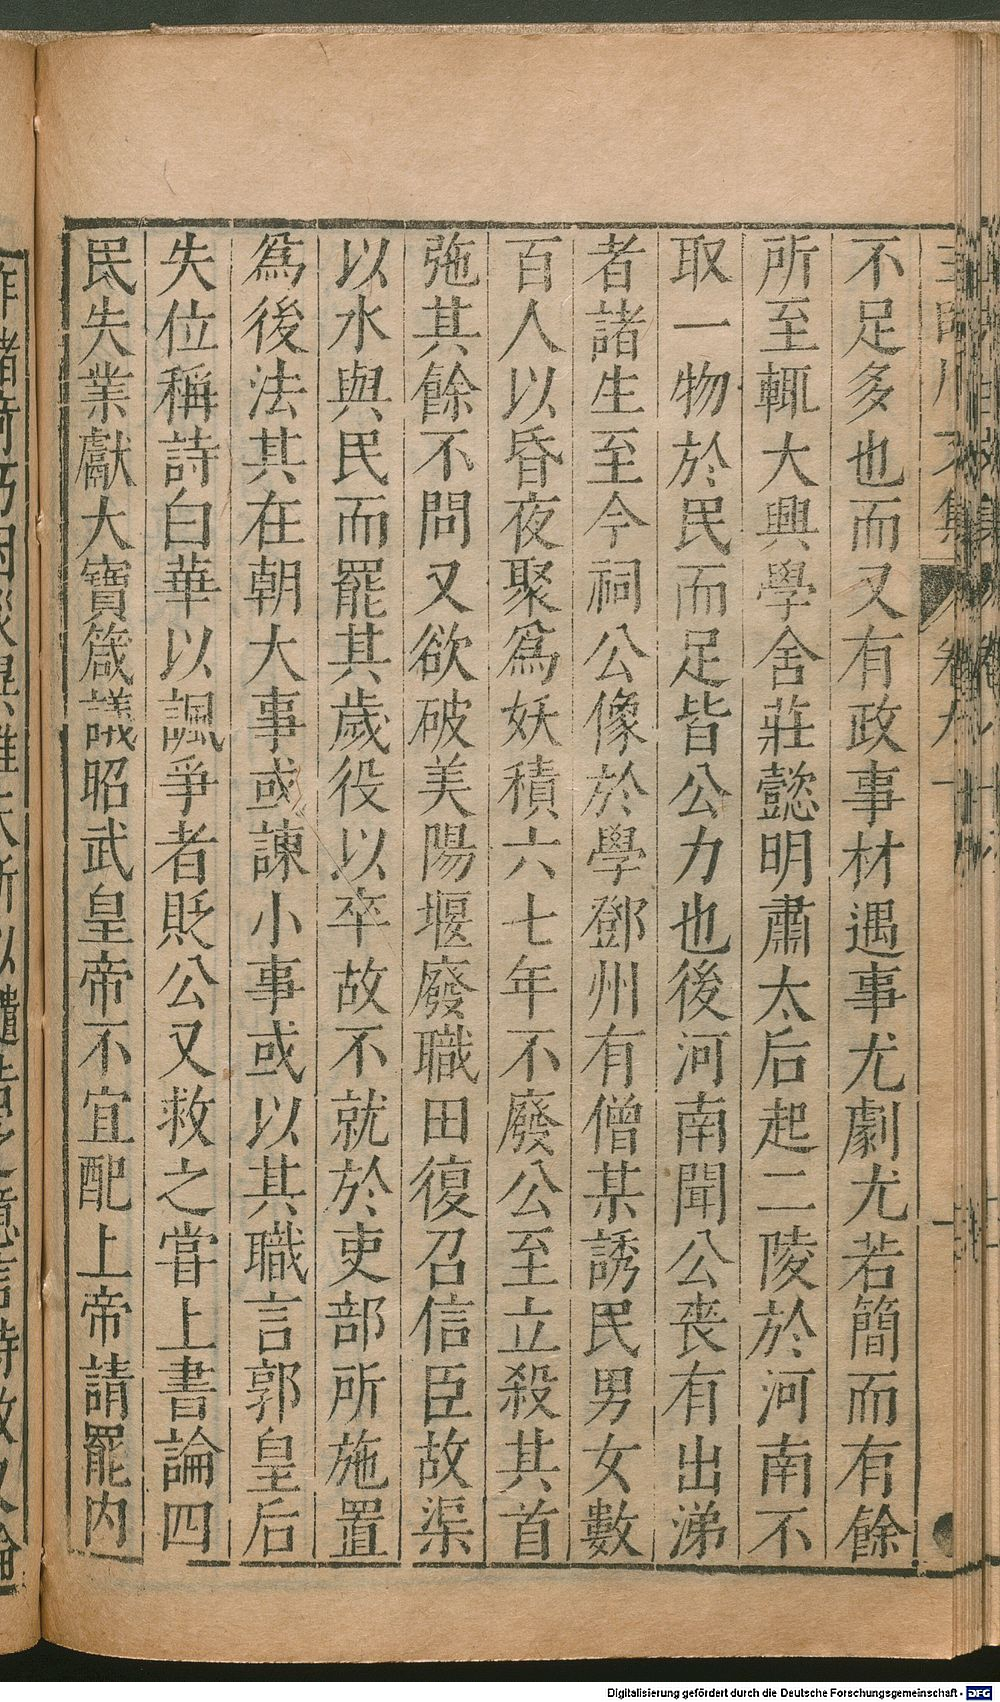 不足多也而又有政事材遇事尤劇尤若簡而有餘
所至輒大興學舍莊懿明肅太后起二陵於河南不
取一物於民而足皆公力也後河南聞公喪有出涕
者諸生至今祠公像於學鄧州有僧某誘民男女數
百人以昏夜聚爲妖積六七年不廢公至立殺其首
弛其餘不問又欲破美陽堰廢職田復召信臣故渠
以水與民而罷其歲役以卒故不就於吏部所施置
爲後法其在朝大事或諫小事或以其職言郭皇后
失位稱詩白華以諷爭者貶公又救之甞上書論四
民失業獻大寶箴議昭武皇帝不宜配上帝請罷內
Digitalisierung gefördert durch die Deutsche Forschungsgemeinschaft - DFG